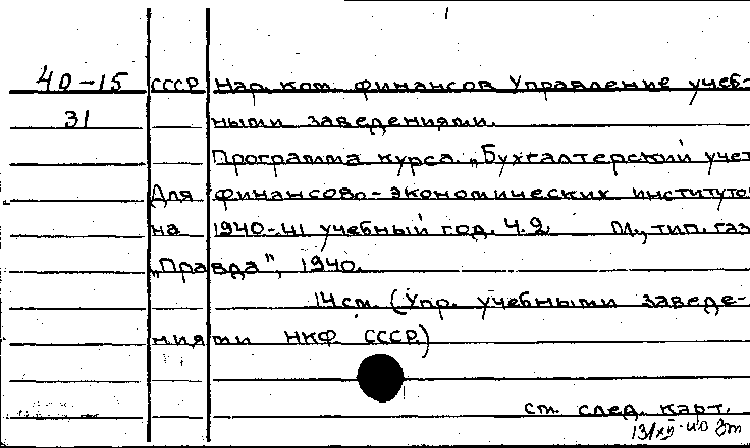 40-15 СССР Нар. ком. финансов Управление учеб-
31 ными заведениями.
Программа курса „Бухгалтерский учет
Для финансово-экономических институтов
на 1940-41 учебный год. Ч.2. М., тип. газ.
„Правда", 1940.
14 см. (Упр. учебными заведе-
ниями НКФ СССР)
см. след. карт.
13/XII-40